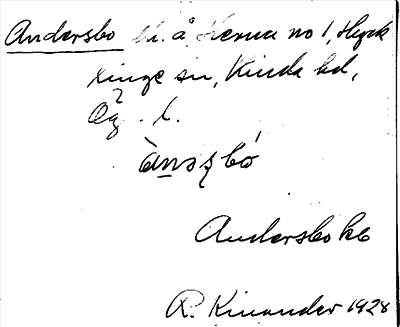 Andersbo lt. å Kerna no 1, Hyck
linge sn, Kinda hd,
Ög. l.
ànsʒbó
Andersbo kb
R. Kinander 1928